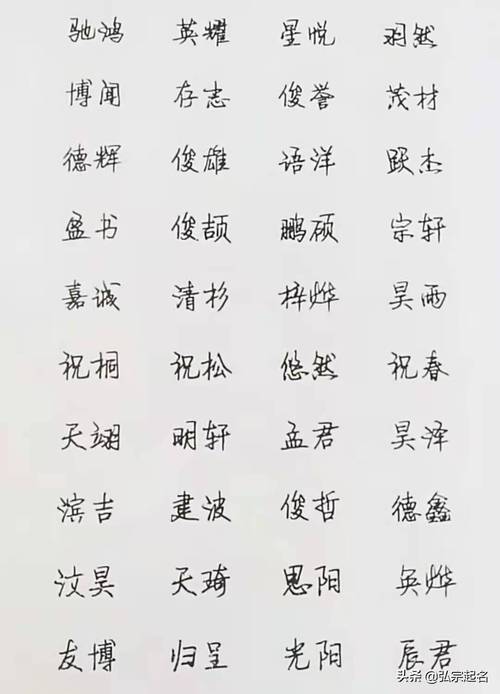 驰鸿 英耀 星悦 羽然
博闻 存志 俊誉 茂材
德辉 俊雄 语洋 跃杰
盈书 俊颉 鹏硕 宗轩
嘉诚 清杉 梓烨 昊雨
祝桐 祝松 悠然 祝春
天翊 明轩 孟君 昊泽
滨吉 建波 俊哲 德鑫
汶昊 天琦 思阳 英烨
友博 归呈 光阳 辰君
头条@弘宗起名